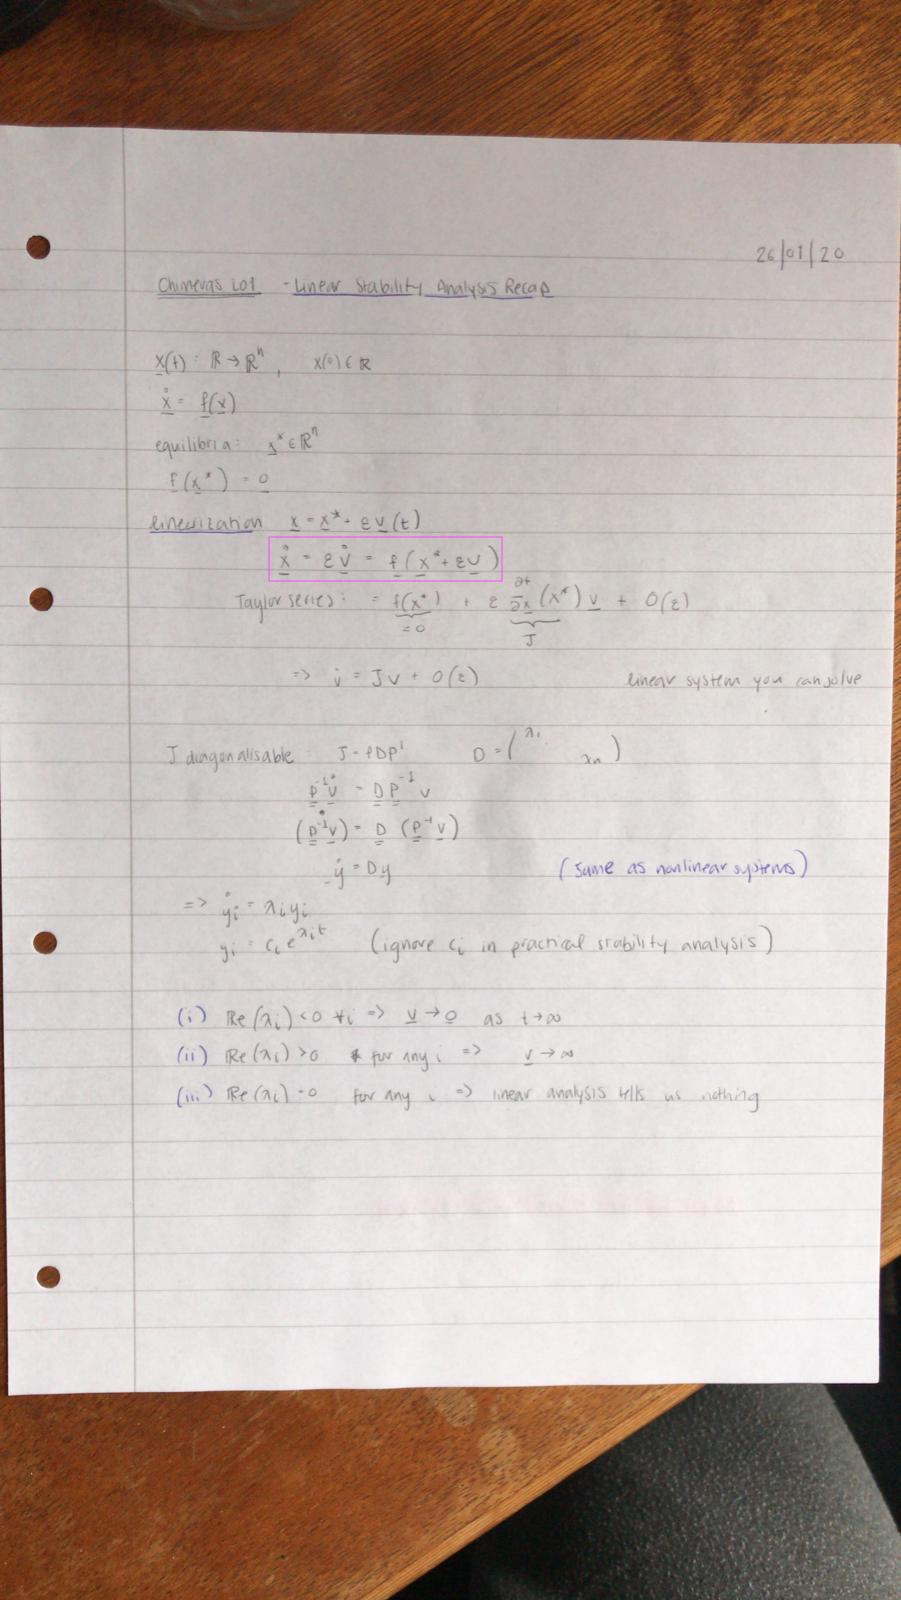 26/01/20
Chimeras L01 - Linear Stability Analysis Recap
x(t) : ℝ → ℝⁿ, x(0) ∈ ℝ
ẋ = f(x)
equilibria: x* ∈ ℝⁿ
f(x*) = 0
linearization x = x* + εv(t)
ẋ = εv̇ = f(x* + εv)
Taylor series: = f(x*) + ε ∂f/∂x (x*) v + O(ε)
= 0 J
=> v̇ = Jv + O(ε) linear system you can solve
J diagonalisable: J = PDP⁻¹ D = (λ₁ λₙ)
P⁻¹v̇ = DP⁻¹v
(P⁻¹v̇) = D (P⁻¹v)
ẏ = Dy (same as nonlinear systems)
=> ẏᵢ = λᵢyᵢ
yᵢ = cᵢe^λᵢt (ignore cᵢ in practical stability analysis)
(i) Re(λᵢ) < 0 ∀i => v → 0 as t → ∞
(ii) Re(λᵢ) > 0 for any i => v → ∞
(iii) Re(λᵢ) = 0 for any i => linear analysis tells us nothing